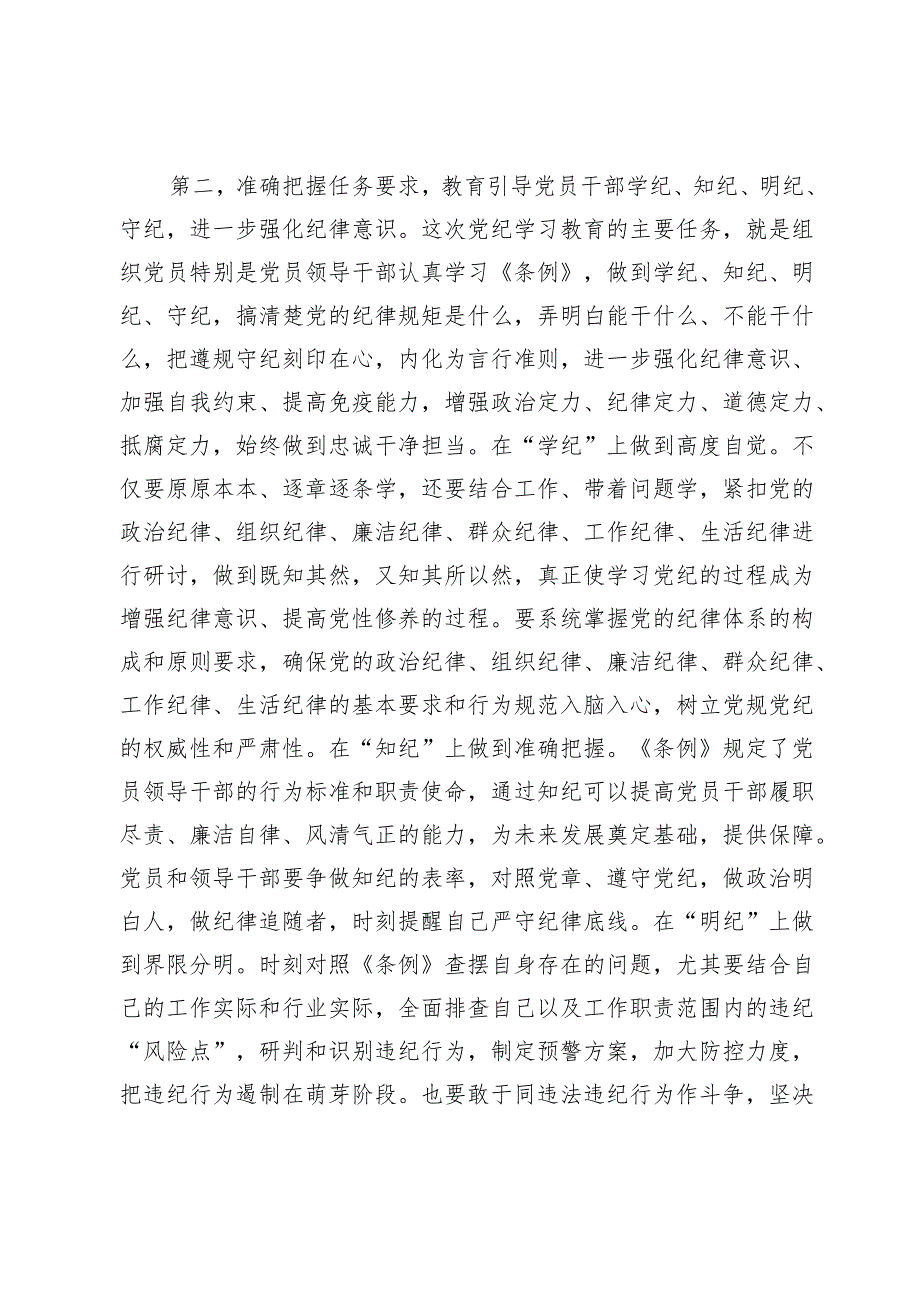 第二，准确把握任务要求，教育引导党员干部学纪、知纪、明纪、
守纪，进一步强化纪律意识。这次党纪学习教育的主要任务，就是组
织党员特别是党员领导干部认真学习《条例》，做到学纪、知纪、明
纪、守纪，搞清楚党的纪律规矩是什么，弄明白能干什么、不能干什
么，把遵规守纪刻印在心，内化为言行准则，进一步强化纪律意识、
加强自我约束、提高免疫能力，增强政治定力、纪律定力、道德定力、
抵腐定力，始终做到忠诚干净担当。在“学纪”上做到高度自觉。不
仅要原原本本、逐章逐条学，还要结合工作、带着问题学，紧扣党的
政治纪律、组织纪律、廉洁纪律、群众纪律、工作纪律、生活纪律进
行研讨，做到既知其然，又知其所以然，真正使学习党纪的过程成为
增强纪律意识、提高党性修养的过程。要系统掌握党的纪律体系的构
成和原则要求，确保党的政治纪律、组织纪律、廉洁纪律、群众纪律、
工作纪律、生活纪律的基本要求和行为规范入脑入心，树立党规党纪
的权威性和严肃性。在“知纪”上做到准确把握。《条例》规定了党
员领导干部的行为标准和职责使命，通过知纪可以提高党员干部履职
尽责、廉洁自律、风清气正的能力，为未来发展奠定基础，提供保障。
党员和领导干部要争做知纪的表率，对照党章、遵守党纪，做政治明
白人，做纪律追随者，时刻提醒自己严守纪律底线。在“明纪”上做
到界限分明。时刻对照《条例》查摆自身存在的问题，尤其要结合自
己的工作实际和行业实际，全面排查自己以及工作职责范围内的违纪
“风险点”，研判和识别违纪行为，制定预警方案，加大防控力度，
把违纪行为遏制在萌芽阶段。也要敢于同违法违纪行为作斗争，坚决